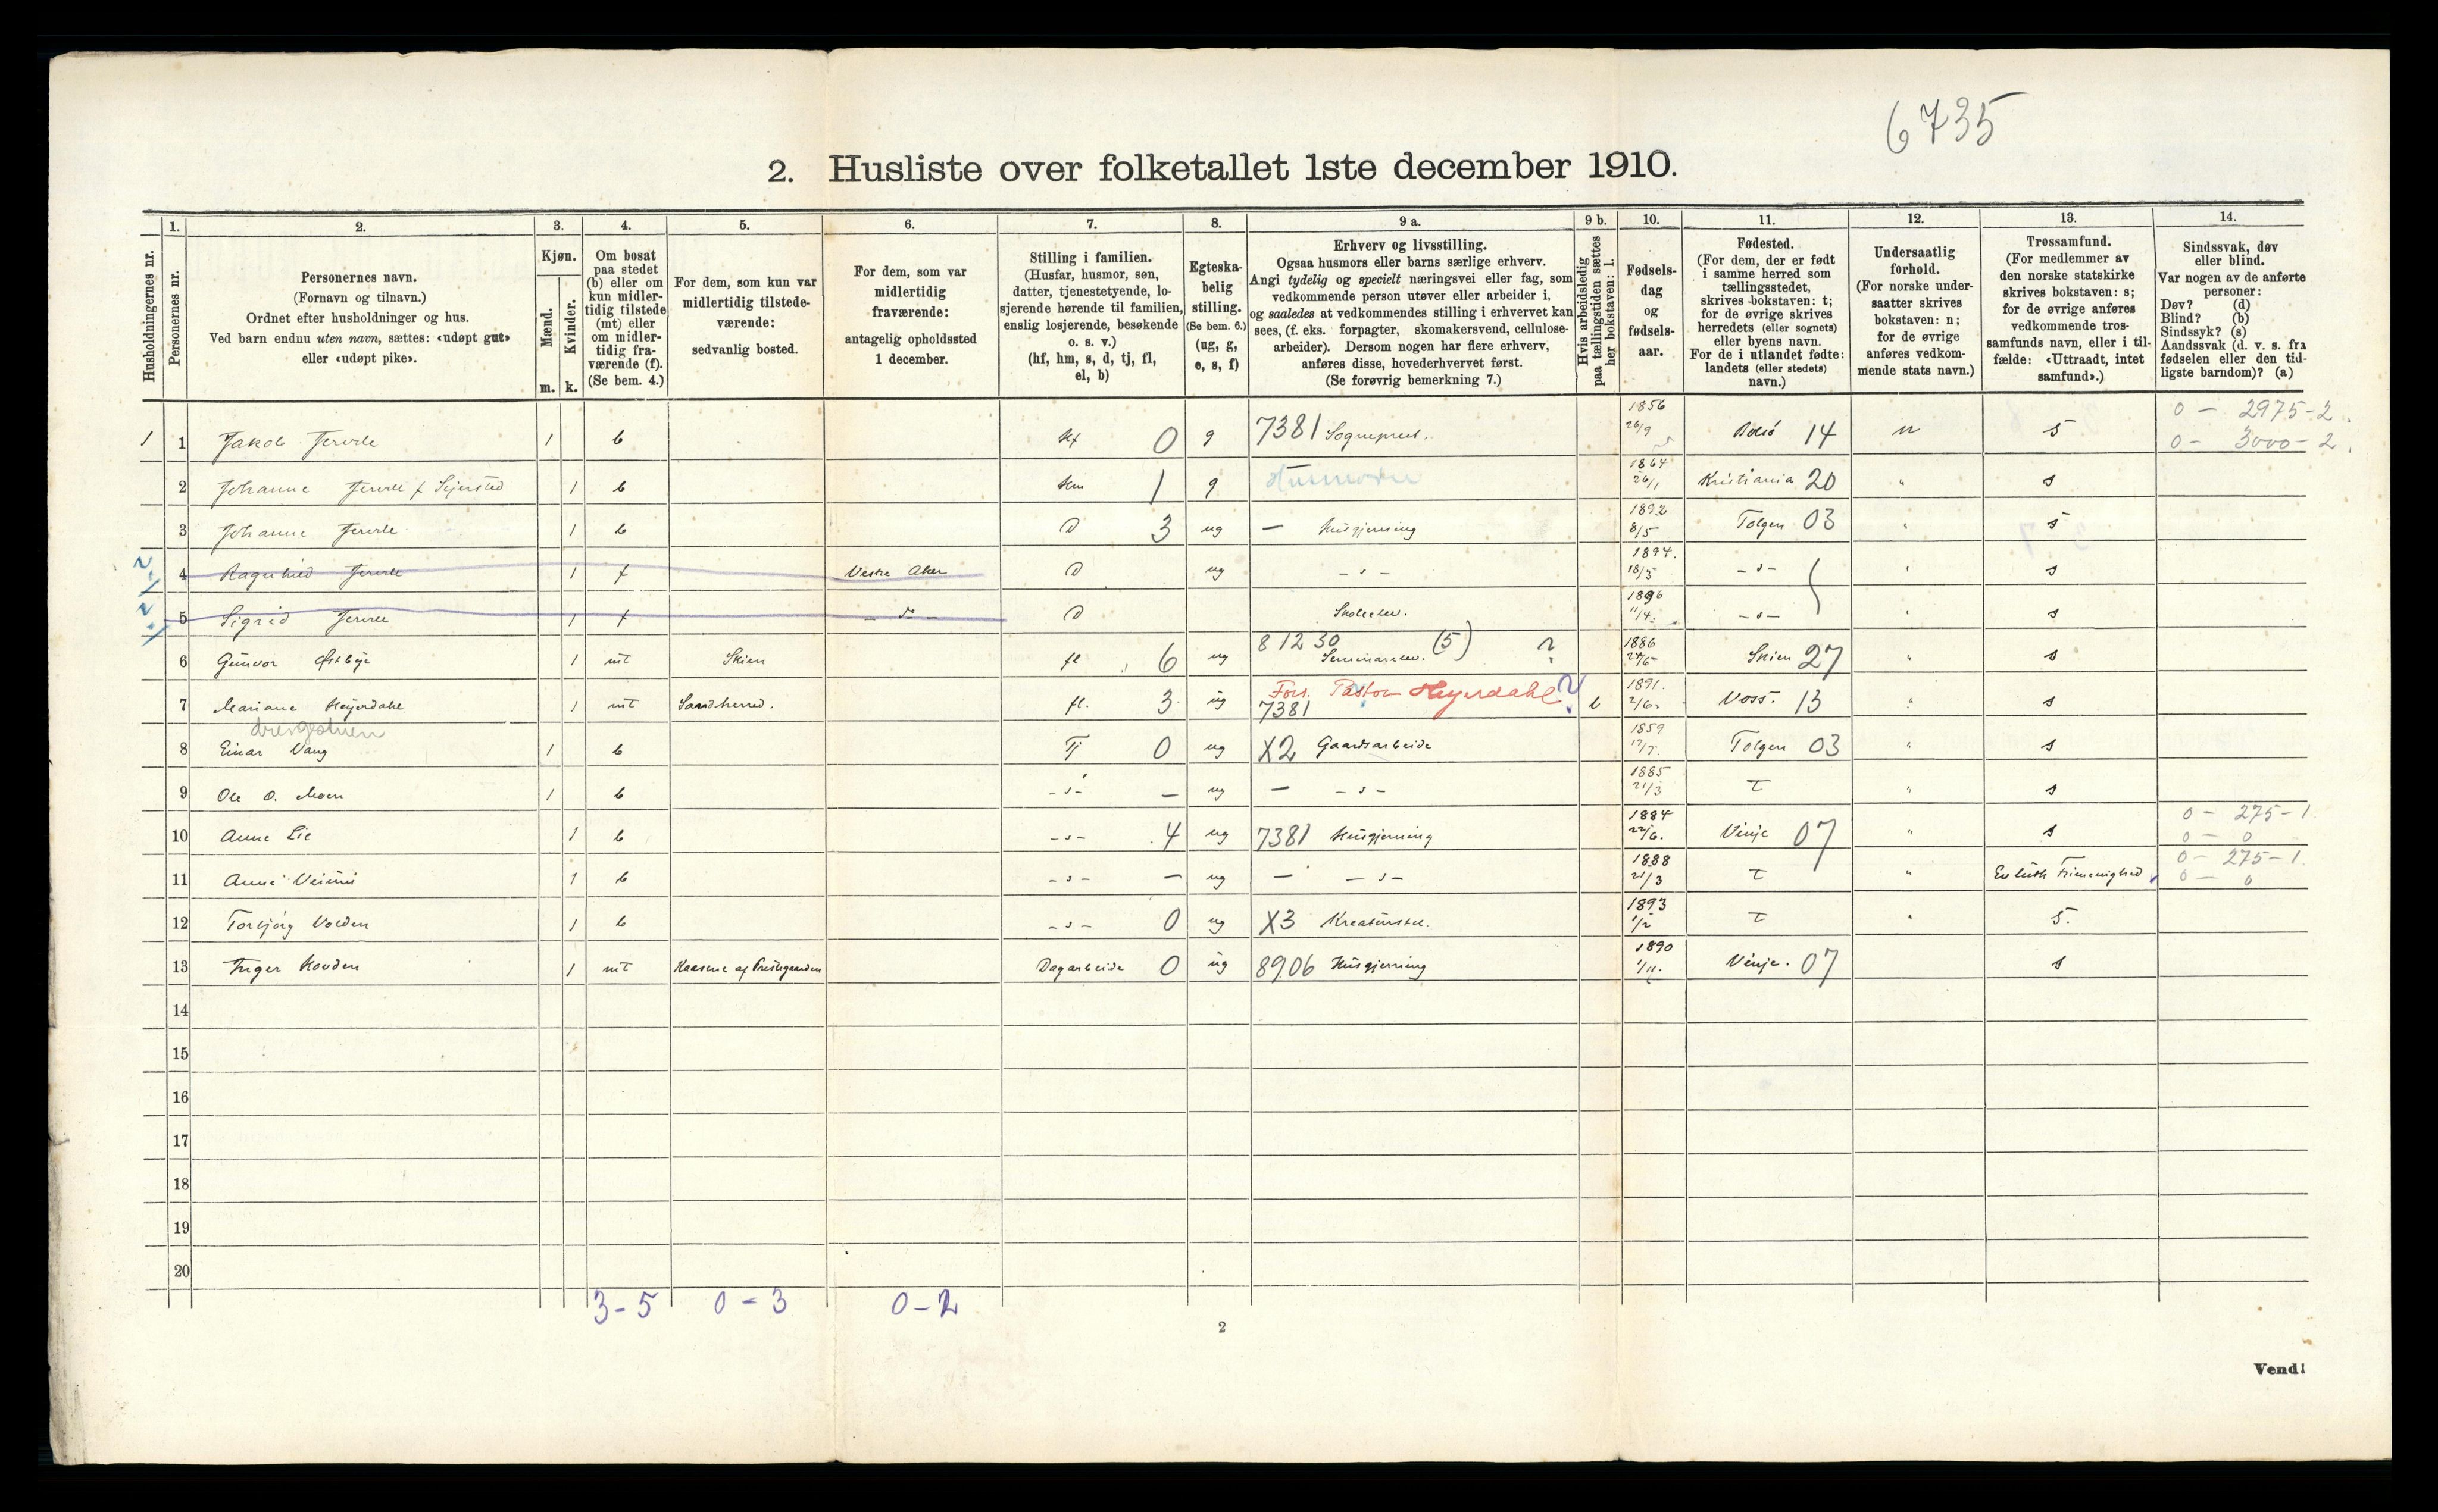 6735
2. Husliste over folketallet 1ste december 1910.
1. 2. 3. 4. 5. 6. 7. 8. 9 a. 9 b. 10. 11. 12. 13. 14.
Husholdningernes nr.
Personernes nr.
Personernes navn.
(Fornavn og tilnavn.)
Ordnet efter husholdninger og hus.
Ved barn endnu uten navn, sættes: «udøpt gut»
eller «udøpt pike».
Kjøn.
Mænd.
Kvinder.
m. k.
Om bosat
paa stedet
(b) eller om
kun midler-
tidig tilstede
(mt) eller
om midler-
tidig fra-
værende (f).
(Se bem. 4.)
For dem, som kun var
midlertidig tilstede-
værende:
sedvanlig bosted.
For dem, som var
midlertidig
fraværende:
antagelig opholdssted
1 december.
Stilling i familien.
(Husfar, husmor, søn,
datter, tjenestetyende, lo-
sjerende hørende til familien,
enslig losjerende, besøkende
o. s. v.)
(hf, hm, s, d, tj, fl,
el, b)
Egteska-
belig
stilling.
(Se bem. 6.)
(ug, g,
e, s, f)
Erhverv og livsstilling.
Ogsaa husmors eller barns særlige erhverv.
Angi tydelig og specielt næringsvei eller fag, som
vedkommende person utøver eller arbeider i,
og saaledes at vedkommendes stilling i erhvervet kan
sees, (f. eks. forpagter, skomakersvend, cellulose-
arbeider). Dersom nogen har flere erhverv,
anføres disse, hovederhvervet først.
(Se forøvrig bemerkning 7.)
Hvis arbeidsledig
paa tællingstiden sættes
her bokstaven: l.
Fødsels-
dag
og
fødsels-
aar.
Fødested.
(For dem, der er født
i samme herred som
tællingsstedet,
skrives bokstaven: t;
for de øvrige skrives
herredets (eller sognets)
eller byens navn.
For de i utlandet fødte:
landets (eller stedets)
navn.)
Undersaatlig
forhold.
(For norske under-
saatter skrives
bokstaven: n;
for de øvrige
anføres vedkom-
mende stats navn.)
Trossamfund.
(For medlemmer av
den norske statskirke
skrives bokstaven: s;
for de øvrige anføres
vedkommende tros-
samfunds navn, eller i til-
fælde: «Uttraadt, intet
samfund».)
Sindssvak, døv
eller blind.
Var nogen av de anførte
personer:
Døv? (d)
Blind? (b)
Sindssyk? (s)
Aandssvak (d. v. s. fra
fødselen eller den tid-
ligste barndom)? (a)
1 1 Jakob 1 b Hf 0 g 7381 Sogneprest. 1856 26/9 14 n s 0 - 2975-2. 0 - 3000-2.
2 Johanne f Sejersted 1 b Hm 1 g Husmoder 1864 26/1 Kristiania 20 " s
3 Johanne 1 b D 3 ug — Husgjerning 1892 8/5 Tolgen 03 " s
4 Ragnhild 1 f Vestre Aker D ug - s - 1894. 18/5 - s - " s
5 Sigrid 1 f - do - D Skoleelev. 1896 11/4. - s - " s
6 Gunvor Østbye 1 mt Skien fl 6 ug 81230 (5) ? 1886 24/6 Skien 27 " s
7 Mariane Heyerdahl 1 mt Sandherred. fl. 3 ug Fors. Pastor Heyerdahl? 7381 l 1891. 2/6. Voss. 13 " s
drengstuen
8 Einar Vang 1 b Tj 0 ug X2 Gaardsarbeide 1859 Tolgen 03 " s
9 Ole O. Moen 1 b - s - — ug — - s - 1885 21/3 T " s
10 Anne Lie 1 b - s - 4 ug 7381 Husgjerning 1884 22/6. Vinje 07 " s 0 - 275-1. 0 - 0
11 Anne 1 b - s - — ug — - s - 1888 21/3 T " Ev luth Frimenighed 0 - 275-1. 0 - 0
12 Torbjørg Volden 1 b - s - 0 ug X3 Kreaturstel. 1893 1/2 T " s.
13 Inger Hovden 1 mt Kaasene af Prestegaarden Dagarbeide 0 ug 8906 Husgjerning 1890 1/11. Vinje. 07 s
14
15
16
17
18
19
20
3-5 0-3 0-2
2
Vend!